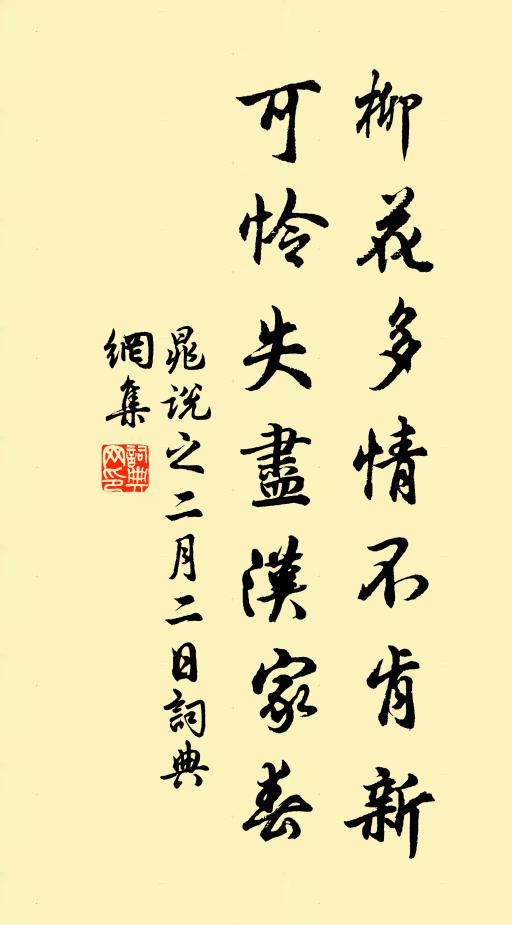 柳花多情不肯新
可憐失盡漢家春
晁說之二月二日詞典
網集
詞典
网印